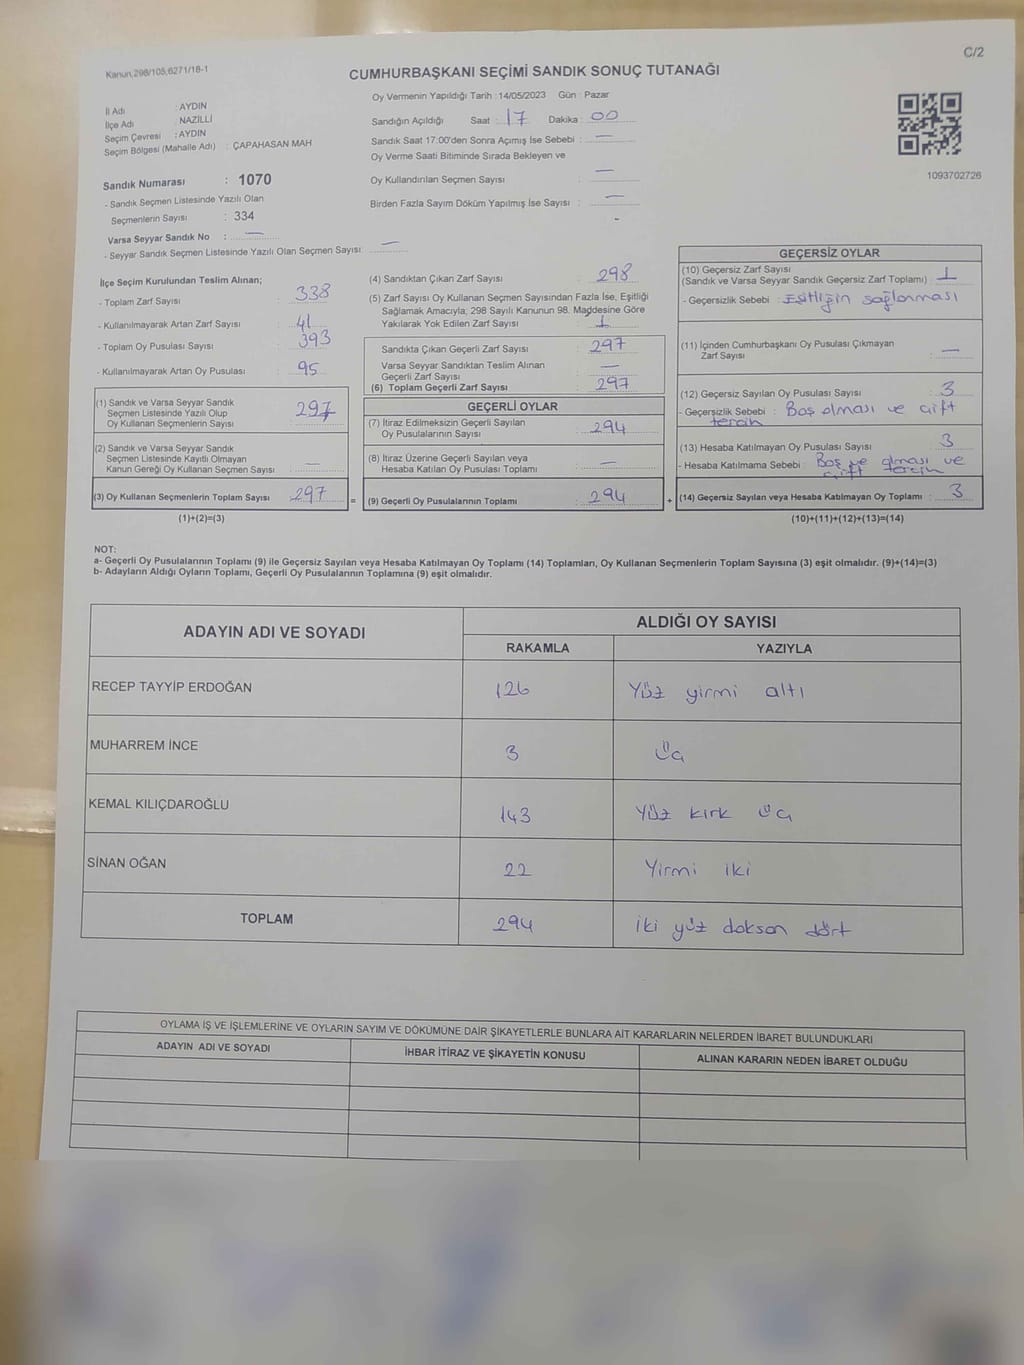 Kanun,298/105,6271/18-1
C/2
CUMHURBAŞKANI SEÇİMİ SANDIK SONUÇ TUTANAĞI
İl Adı : AYDIN
İlçe Adı : NAZİLLİ
Seçim Çevresi : AYDIN
Seçim Bölgesi (Mahalle Adı) : ÇAPAHASAN MAH
Sandık Numarası : 1070
- Sandık Seçmen Listesinde Yazılı Olan
Seçmenlerin Sayısı : 334
Varsa Seyyar Sandık No : —
- Seyyar Sandık Seçmen Listesinde Yazılı Olan Seçmen Sayısı : —
Oy Vermenin Yapıldığı Tarih :14/05/2023 Gün : Pazar
Sandığın Açıldığı Saat : 17 Dakika : 00
Sandık Saat 17:00'den Sonra Açımış İse Sebebi : —
Oy Verme Saati Bitiminde Sırada Bekleyen ve
Oy Kullandırılan Seçmen Sayısı : —
Birden Fazla Sayım Döküm Yapılmış İse Sayısı : —
1093702726
İlçe Seçim Kurulundan Teslim Alınan;
- Toplam Zarf Sayısı : 338
- Kullanılmayarak Artan Zarf Sayısı : 41
- Toplam Oy Pusulası Sayısı : 393
- Kullanılmayarak Artan Oy Pusulası : 95
(1) Sandık ve Varsa Seyyar Sandık
Seçmen Listesinde Yazılı Olup
Oy Kullanan Seçmenlerin Sayısı : 297
(2) Sandık ve Varsa Seyyar Sandık
Seçmen Listesinde Kayıtlı Olmayan
Kanun Gereği Oy Kullanan Seçmen Sayısı : —
(3) Oy Kullanan Seçmenlerin Toplam Sayısı : 297 =
(1)+(2)=(3)
(4) Sandıktan Çıkan Zarf Sayısı : 298
(5) Zarf Sayısı Oy Kullanan Seçmen Sayısından Fazla İse, Eşitliği
Sağlamak Amacıyla; 298 Sayılı Kanunun 98. Maddesine Göre
Yakılarak Yok Edilen Zarf Sayısı : 1
Sandıkta Çıkan Geçerli Zarf Sayısı : 297
Varsa Seyyar Sandıktan Teslim Alınan
Geçerli Zarf Sayısı : —
(6) Toplam Geçerli Zarf Sayısı : 297
GEÇERLİ OYLAR
(7) İtiraz Edilmeksizin Geçerli Sayılan
Oy Pusulalarının Sayısı : 294
(8) İtiraz Üzerine Geçerli Sayılan veya
Hesaba Katılan Oy Pusulası Toplamı : —
(9) Geçerli Oy Pusulalarının Toplamı : 294 +
GEÇERSİZ OYLAR
(10) Geçersiz Zarf Sayısı
(Sandık ve Varsa Seyyar Sandık Geçersiz Zarf Toplamı) : 1
- Geçersizlik Sebebi : Eşitliğin sağlanması
(11) İçinden Cumhurbaşkanı Oy Pusulası Çıkmayan
Zarf Sayısı : —
(12) Geçersiz Sayılan Oy Pusulası Sayısı : 3
- Geçersizlik Sebebi : Boş olması ve çift
tercih
(13) Hesaba Katılmayan Oy Pusulası Sayısı : 3
- Hesaba Katılmama Sebebi : Boş olması ve
çift tercih
(14) Geçersiz Sayılan veya Hesaba Katılmayan Oy Toplamı : 3
(10)+(11)+(12)+(13)=(14)
NOT:
a- Geçerli Oy Pusulalarının Toplamı (9) ile Geçersiz Sayılan veya Hesaba Katılmayan Oy Toplamı (14) Toplamları, Oy Kullanan Seçmenlerin Toplam Sayısına (3) eşit olmalıdır. (9)+(14)=(3)
b- Adayların Aldığı Oyların Toplamı, Geçerli Oy Pusulalarının Toplamına (9) eşit olmalıdır.
ADAYIN ADI VE SOYADI ALDIĞI OY SAYISI
RAKAMLA YAZIYLA
RECEP TAYYİP ERDOĞAN 126 Yüz yirmi altı
MUHARREM İNCE 3 üç
KEMAL KILIÇDAROĞLU 143 Yüz kırk üç
SİNAN OĞAN 22 Yirmi iki
TOPLAM 294 iki yüz doksan dört
OYLAMA İŞ VE İŞLEMLERİNE VE OYLARIN SAYIM VE DÖKÜMÜNE DAİR ŞİKAYETLERLE BUNLARA AİT KARARLARIN NELERDEN İBARET BULUNDUKLARI
ADAYIN ADI VE SOYADI İHBAR İTİRAZ VE ŞİKAYETİN KONUSU ALINAN KARARIN NEDEN İBARET OLDUĞU